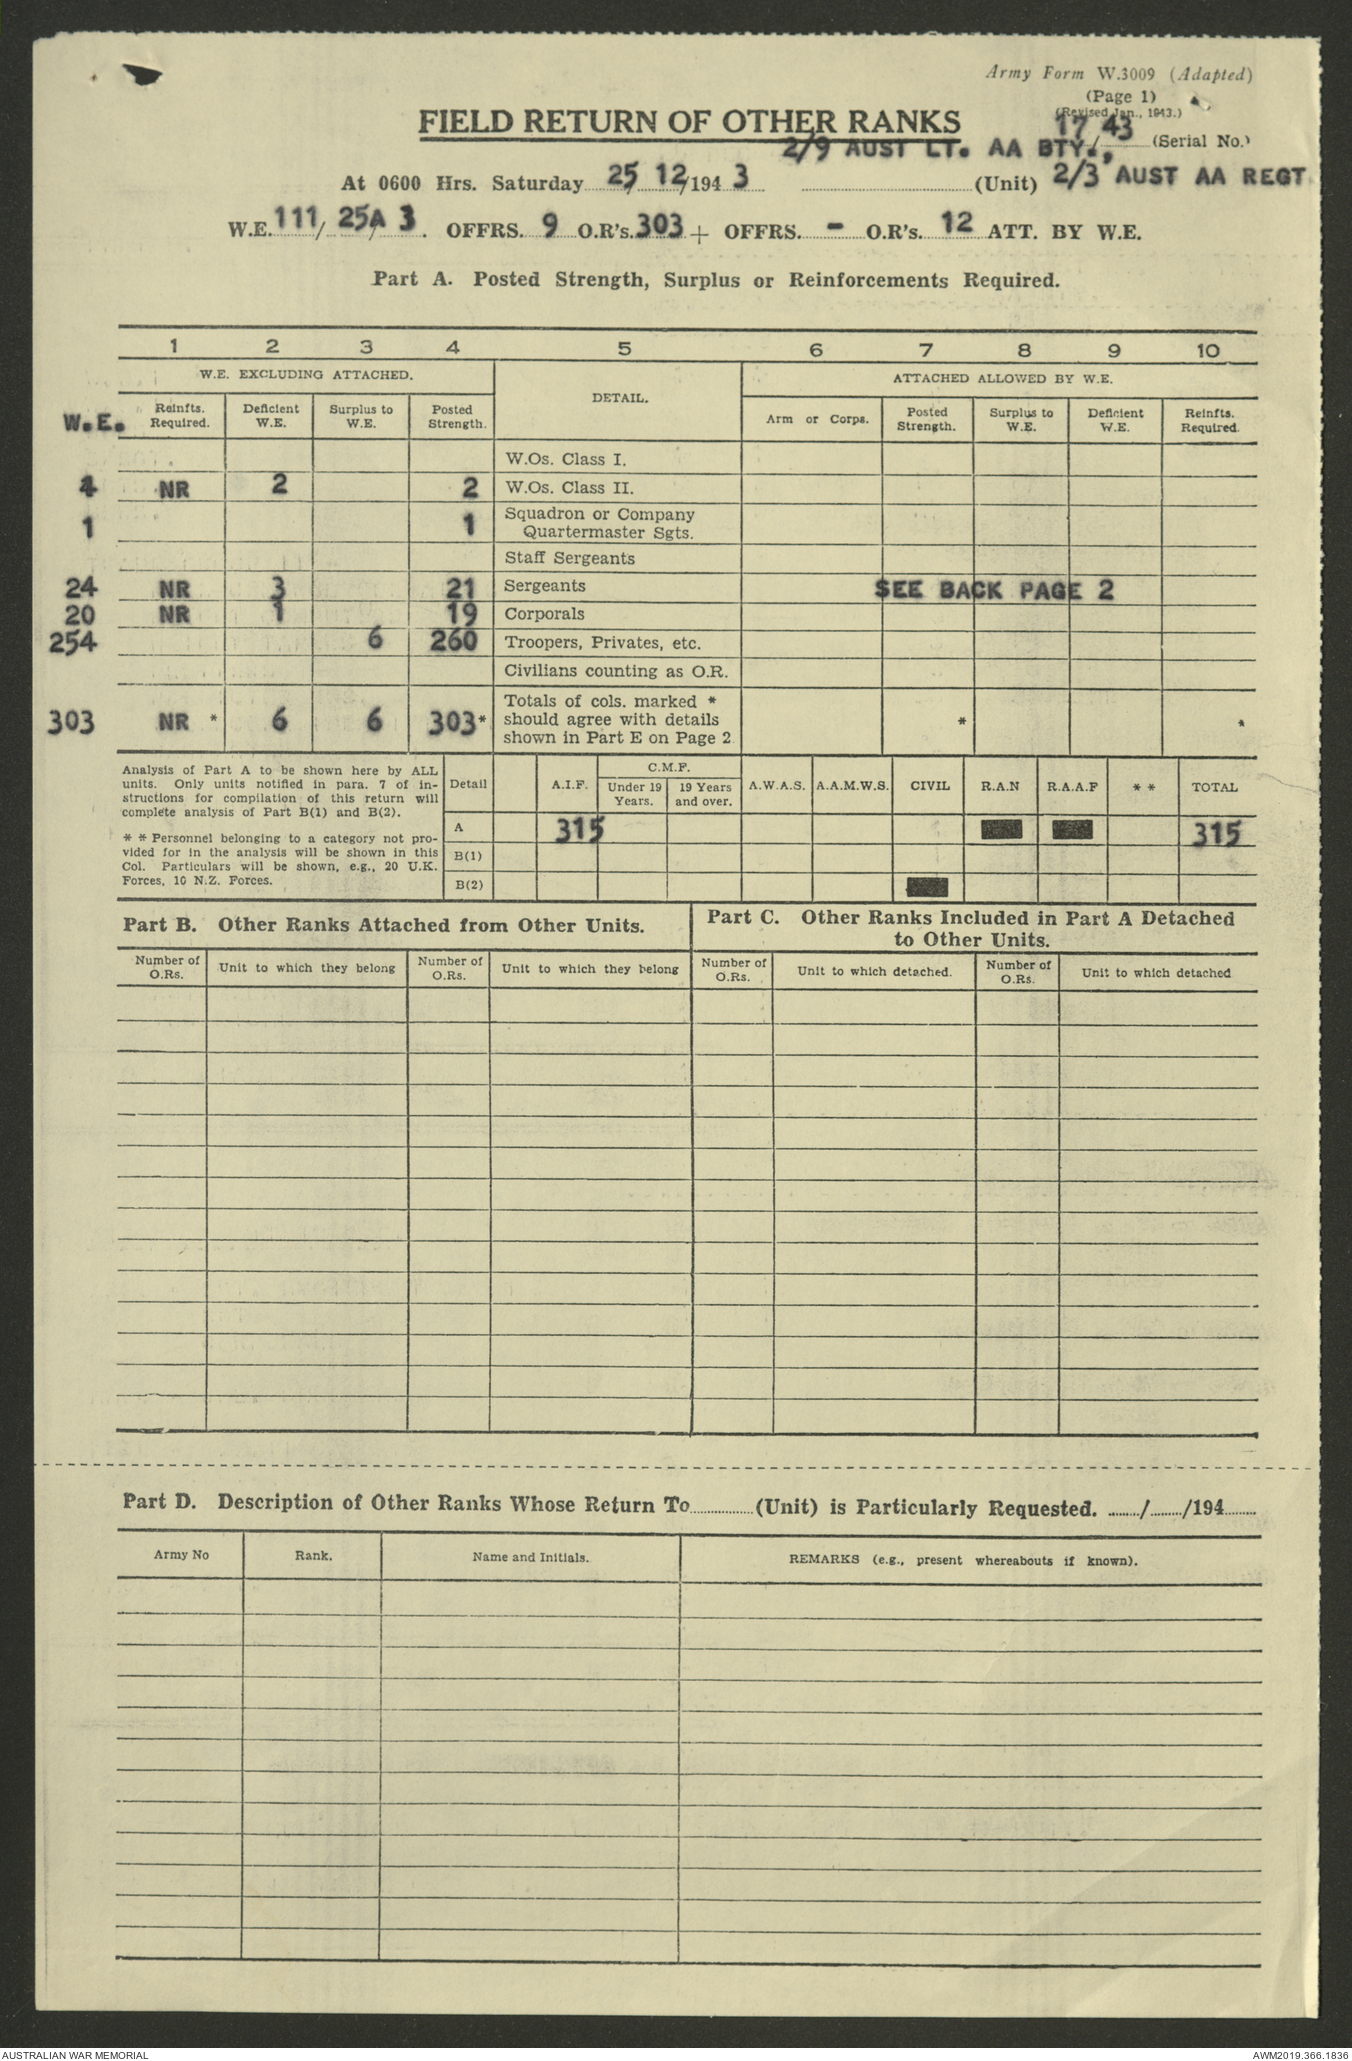 Army Form W.3009 (Adapted)
(Page 1)
(Revised Jan., 1943.)
FIELD RETURN OF OTHER RANKS
17/43 (Serial No.)
2/9 AUST LT. AA BTY.,
At 0600 Hrs. Saturday 25/12/1943 (Unit) 2/3 AUST AA REGT
W.E. 111/25A/3. OFFRS. 9 O.R's. 303 + OFFRS. - O.R's. 12 ATT. BY W.E.
Part A. Posted Strength, Surplus or Reinforcements Required.
1 2 3 4 5 6 7 8 9 10
W.E. EXCLUDING ATTACHED. DETAIL. ATTACHED ALLOWED BY W.E.
W.E. Reinfts. Required. Deficient W.E. Surplus to W.E. Posted Strength. Arm or Corps. Posted Strength. Surplus to W.E. Deficient W.E. Reinfts. Required.
W.Os. Class I.
4 NR 2 2 W.Os. Class II.
1 1 Squadron or Company Quartermaster Sgts.
Staff Sergeants
24 NR 3 21 Sergeants SEE BACK PAGE 2
20 NR 1 19 Corporals
254 6 260 Troopers, Privates, etc.
Civilians counting as O.R.
303 NR * 6 6 303* Totals of cols. marked * should agree with details shown in Part E on Page 2 * *
Analysis of Part A to be shown here by ALL
units. Only units notified in para. 7 of in-
structions for compilation of this return will
complete analysis of Part B(1) and B(2).
* * Personnel belonging to a category not pro-
vided for in the analysis will be shown in this
Col. Particulars will be shown, e.g., 20 U.K.
Forces, 10 N.Z. Forces.
Detail A.I.F. C.M.F. Under 19 Years. 19 Years and over. A.W.A.S. A.A.M.W.S. CIVIL R.A.N R.A.A.F * * TOTAL
A 315 315
B(1)
B(2)
Part B. Other Ranks Attached from Other Units.
Part C. Other Ranks Included in Part A Detached
to Other Units.
Number of O.Rs. Unit to which they belong Number of O.Rs. Unit to which they belong Number of O.Rs. Unit to which detached. Number of O.Rs. Unit to which detached
Part D. Description of Other Ranks Whose Return To.............(Unit) is Particularly Requested. ......./......./194.......
Army No Rank. Name and Initials. REMARKS (e.g., present whereabouts if known).
AUSTRALIAN WAR MEMORIAL AWM2019.366.1836